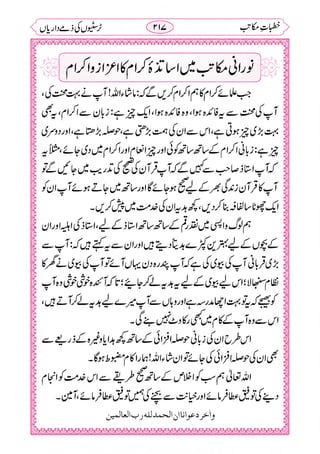 خطباتِ مکاتب ۲۱۷ ٹرسٹیوں کی ذمے داریاں
نورانی مکاتب میں اساتذۂ کرام کا اعزاز و اکرام
جب علمائے کرام کا ہم اکرام کریں گے کہ: ماشاء اللہ! آپ نے بہت محنت کی،
آپ کی محنت سے یہ فائدہ ہوا، وہ فائدہ ہوا، ایک چیز ہے: زبان سے اکرام، یہ بھی
بڑی بہت چیز ہوتی ہے، اس سے ان کی ہمت بڑھتی ہے، حوصلہ بڑھتا ہے، اور دوسری
چیز ہے: زبانی اکرام کے ساتھ کوئی چیز انعام اور اکرام میں دی جائے، یہ مثلاً
کہ آپ استاذ صاحب سے کہیں گے کہ آپ قرآن کی تصحیح کی تدریب میں جائیں گے تو
آپ کا قرآن زندگی بھر کے لیے صحیح ہو جائے گا اور ساتھ میں جاتے ہوئے آپ ان کو
ایک اچھا سا لفافہ بنا کر دیں، کچھ ہدیہ ان کی خدمت میں پیش کریں۔
ہم لوگ واپسی میں نقد رقم کے ساتھ ساتھ استاذ کے لیے، استاذ کی اہلیہ اور ان
کے بچوں کے لیے بہترین کپڑے ہدایا دیتے ہیں اور ان سے یہ کہتے ہیں کہ: آپ سے
بڑی قربانی آپ کی بیوی کی ہے کہ آپ پندرہ دن یہاں آئے تو آپ کی بیوی نے گھر کا
نظام سنبھالا؛ اس لیے بیوی کے لیے یہ ہدیہ لے کر جائیے؛ تاکہ آئندہ خوشی خوشی وہ آپ
کو بھیجے کہ وہ تو بہت اچھا مدرسہ ہے اور وہاں سے آپ میرے لیے ہدیہ لے کر آتے ہیں،
اس سے وہ آپ کے کام میں کبھی رکاوٹ نہیں بنے گی۔
اس طرح ان کی زبانی حوصلہ افزائی کے ساتھ کچھ ہدایا وغیرہ کے ذریعے سے
بھی ان کی حوصلہ افزائی کی جائے تو ان شاء اللہ! ہمارا کام مضبوط ہوگا۔
اللہ تعالیٰ ہم سب کو اخلاص کے ساتھ صحیح طریقے سے اس خدمت کو انجام
دینے کی توفیق عطا فرمائے اور خیانت سے بچنے کی ہمیں توفیق عطا فرمائے، آمین۔
وآخر دعوانا ان الحمد للہ رب العالمین